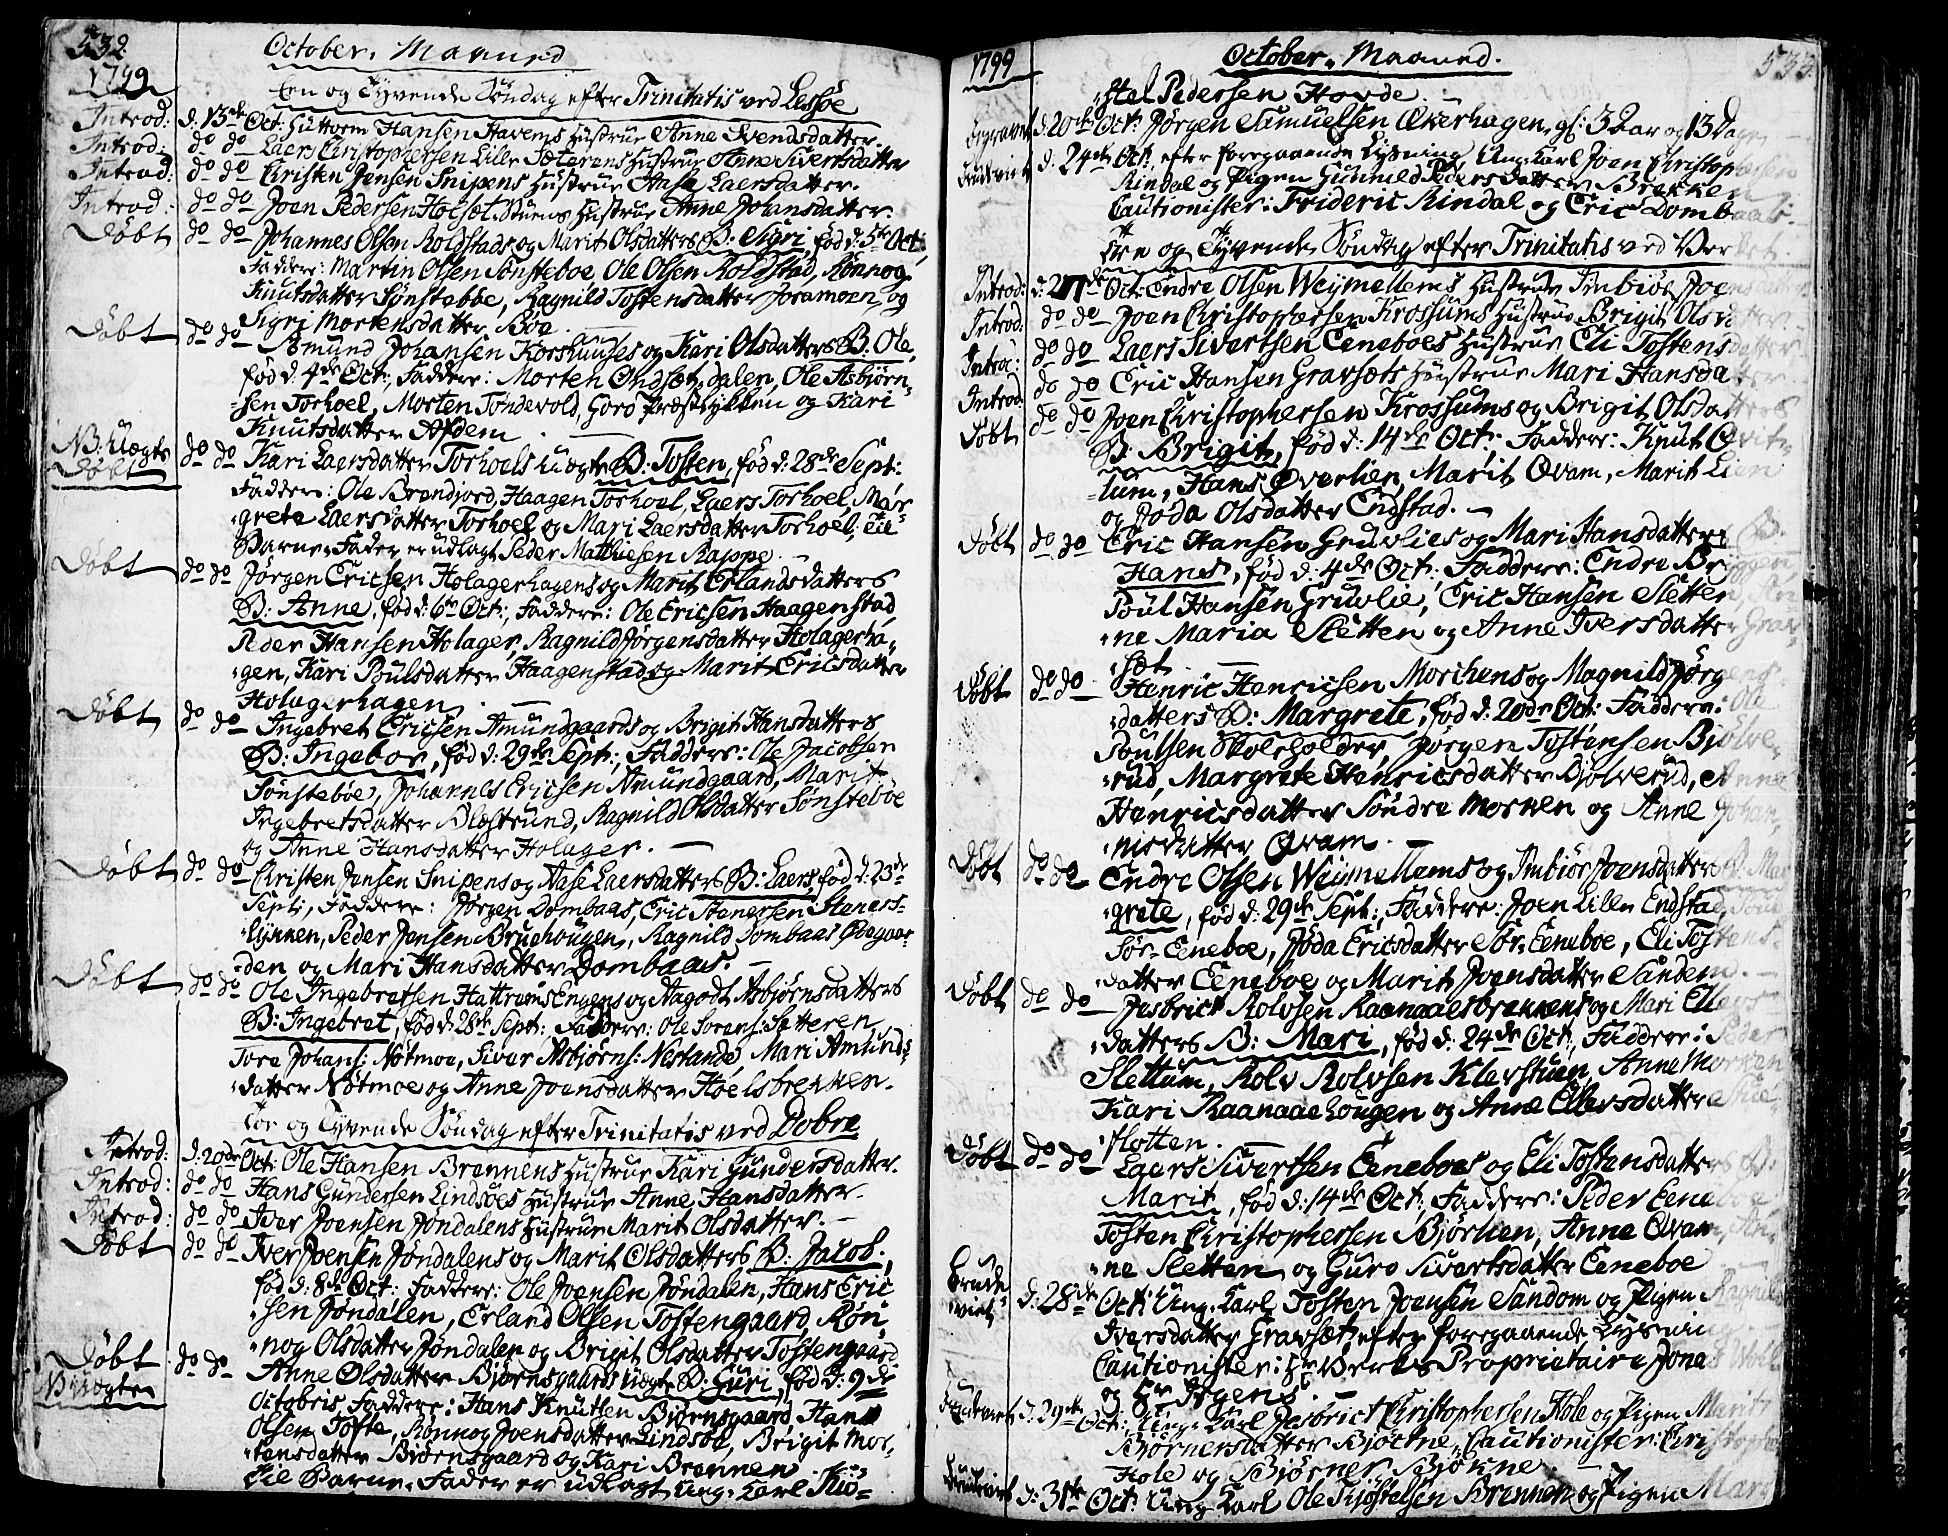 532.
October. Maaned
1799
Een og Tyvende Søndag efter Trinitatis ved Lessøe
Introd: d: 13de Oct: Guttorm Hansen Havems Hustrue Anne Svendsdatter.
Introd: do do Laers Christophersen Lille Sæterens Hustrue Anne Sivertsdatter
Introd: do do Christen Jensen Snipens Hustrue Aase Laersdatter.
Introd: do do Joen Pedersen Holsæt Hustrue Anne Johansdatter.
Døbt do do Johannes Olsen Roldstads og Marit Olsdatters B: Sigri, fød d: 5te Oct:
Faddere: Martin Olsen Sønsteboe, Ole Olsen Roldstad, Rønnog
Knutsdatter Sønsteboe, Ragnild Tostensdatter Joramoen og
Sigri Mortensdatter Böe.
Døbt do do Amund Johansen Korshuuses og Kari Olsdatters B: Ole,
fød d: 4de Oct:, Faddere: Morten Ondsætdalen, Ole Asbjørn-
sen Torhoel, Morten Tøndevold, Goro Præstløkken og Kari
Knutsdatter Afdem
NB: Uægte
Døbt do do Kari Laersdatter Torhoels uægte B: Tosten, fød d: 28de Sept:
Faddere: Ole Brendjord, Haagen Torhoel, Laers Torhoel, Mar-
grete Laersdatter Torhoel og Mari Laersdatter Torhoel; til
Barne-Fader er udlagt Peder Matthiesen Rappe.
Døbt do do Jørgen Ericsen Holagerhagens og Marit Erlandsdatters
B: Anne, fød d: 6te Oct:, Faddere: Ole Ericsen Haagenstad
Peder Hansen Holager, Ragnild Jørgensdatter Holagerha-
gen, Kari Poulsdatter Haagenstad og Marit Ericsdatter
Holagerhagen.
Døbt do do Ingebret Ericsen Amundgaards og Brigit Hansdatters
B: Ingebor, fød d: 29de Sept:, Faddere: Ole Jacobsen
Sønsteboe, Johannes Ericsen Amundgaard, Marit
Ingebretsdatter Blæstrund, Ragnild Olsdatter Sønsteboe
og Anne Hansdatter Holager.
Døbt do do Christen Jensen Snipens og Aase Laersdatters B: Laers, fød d: 23de
Sept:, Faddere: Jørgen Dombaas, Eric Stenersen Steners-
løkken, Peder Jensen Bruehougen, Ragnild Dombaas Øvegaar-
den og Mari Hansdatter Dombaas.
Døbt do do Ole Ingebretsen Hattrems Engens og Aagodt Asbjørnsdatters
B: Ingebret, fød d: 28de Sept:, Faddere: Ole Sorens: Sætteren
Tore Johans: Nøtmoe, Siver Asbjørns: Neslande Mari Amunds-
datter Nøtmoe og Anne Joensdatter Høelsbrekken.
Toe og Tyvende Søndag efter Trinitatis ved Dobre
Introd: d: 20de Oct: Ole Hansen Brennens Hustrue Kari Gundersdatter.
Introd: do do Hans Gundersen Lindsöes Hustrue Anne Hansdatter.
Introd: do do Iver Joensen Jøndalens Hustrue Marit Olsdatter.
Døbt do do Iver Joensen Jøndalens og Marit Olsdatters B: Jacob,
fød d: 8de Oct: Faddere: Ole Joensen Jøndalen, Hans Eric
sen Jøndalen, Erland Olsen Tostengaard, Røn-
nog Olsdatter Jøndalen og Brigit Olsdatter Tostengaard.
Døbt do do Anne Olsdatter Bjørnsgaards uægte B: Guri, fød d: 9de
NB: Uægte
Octobris Faddere: Hans Knutsen Bjørnsgaard, Hans
Olsen Tofte, Rønnog Joensdatter Lindsøe, Brigit Mor-
tensdatter Bjørnsgaard og Kari Brennen.
Til Barne-Fader er udlagt Ung-Karl Kiø-
1799
October. Maaned.
533.
stel Pedersen Hovde.
Begravet d: 20de Oct: Jørgen Samuelsen Økerhagen, gl: 3 Aar og 13 Dage
Brudeviet d: 24de Oct: efter foregaaende Lysning, Ung-Karl Joen Christophersen
Rindal og Pigen Gunnild Pedersdatter Brekken
Cautionister: Frideric Rindal og Eric Dombaas.
Tre og Tyvende Søndag efter Trinitatis ved Verket.
Introd: d: 27de Oct: Endre Olsen Weymellems Hustrue Inbiør Joensdatter
Introd: do do Joen Christophersen Krossums Hustrue Brigit Olsdatter
Introd: do do Laers Sivertsen Eeneboes Hustrue Eli Tostensdatter
Introd: do do Eric Hansen Gravsæts Hustrue Mari Hansdatter
Døbt do do Joen Christophersen Krossums og Brigit Olsdatters
B: Brigit, fød d: 14de Oct: Faddere: Knut Qvit-
tum, Hans Øverlien, Marit Qvam, Marit Lien
og Jøda Olsdatter Endstad.
Døbt do do Eric Hansen Gruvlies og Mari Hansdatters B:
Hans, fød d: 4de Oct:, Faddere: Endre Bryggen
Poul Hansen Gruvlie, Eric Hansen Sletten, An-
ne Maria Sletten og Anne Iversdatter Grav-
sæt.
Døbt do do Henric Henricsen Morkens og Magnild Jørgens-
datters B: Margrete, fød d: 20de Oct: Faddere: Ole
Poulsen Skoleholder, Jørgen Tostensen Bjølve-
rud, Margrete Henricsdatter Bjølverud, Anne
Henricsdatter Søndre Morken og Anne Johan-
nisdatter Qvam.
Døbt do do Endre Olsen Weymellems og Inbiør Joensdatters B: Mar
grete, fød d: 29de Sept:, Faddere: Joen Lille Endstad, Poul
Sør-Eeneboe, Jøda Ericsdatter Sør-Eeneboe, Eli Tostens-
datter Eeneboe og Marit Joensdatter Sandem.
Døbt do do Jesbrict Rolvsen Raanaaesbrennens og Mari Ellers-
datters B: Mari, fød d: 24de Oct:, Faddere: Peder
Slettum, Rolv Rolvsen Klevstuen, Anne Morken
Kari Raanaaehougen og Anne Ellersdatter Stue-
flotten.
Døbt do do Laers Sivertsen Eeneboes og Eli Tostensdatters B:
Marit, fød d: 14de Oct:, Faddere: Peder Eeneboe
Tosten Christophersen Bjørlien, Anne Qvam, An-
ne Sletten og Guro Sivertsdatter Eeneboe
Brude
viet d: 28de Oct: Ung-Karl Tosten Joensen Sandom og Pigen Ragnild
Iversdatter Gravsæt, efter foregaaende Lysning
Cautionister: Hr Verks Proprietaire Jonas
og Hr Irgens.
Brudeviet d: 29de Oct: Ung-Karl Jesbrict Christophersen Hole og Pigen Marit
Bjørnersdatter Bjøckne, Cautionister: Christopher
Hole og Bjørner Bjøkne.
Brudeviet d: 31te Oct: Ung Karl Ole Kiøstelsen Brennen og Pigen Mari